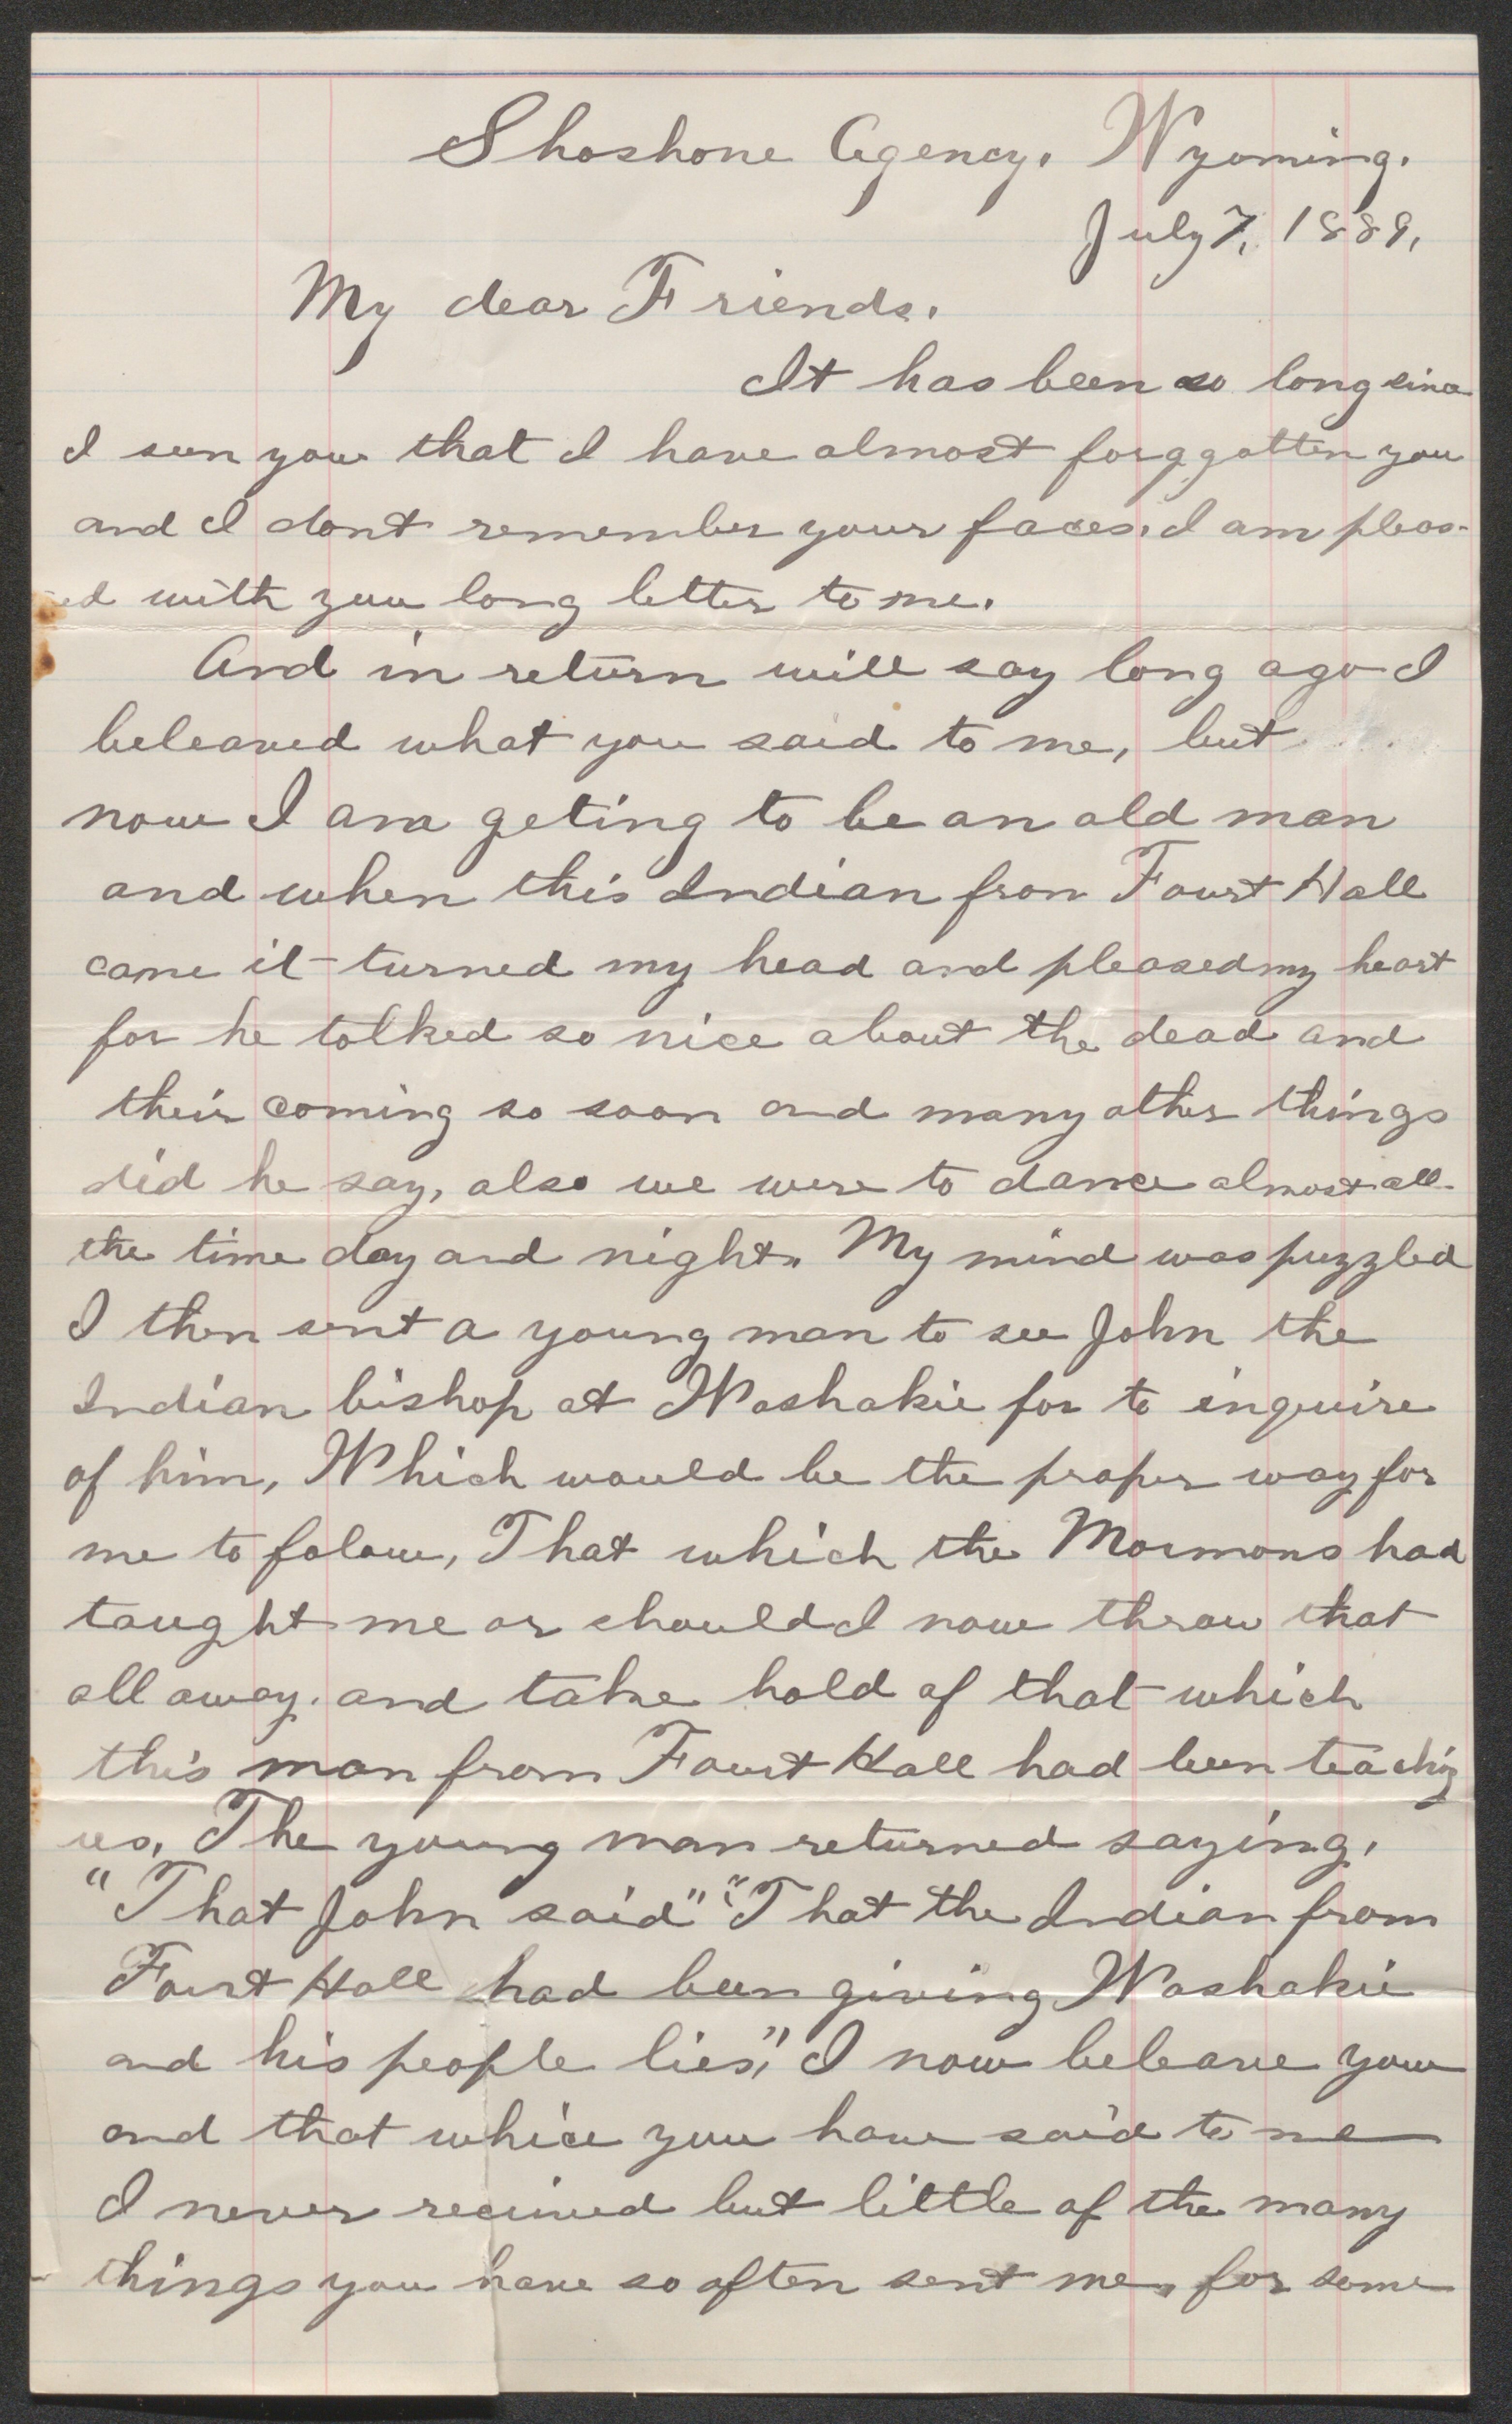 Shoshone Agency. Wyoming.
July 7, 1889,
My dear Friends.
It has been so long since
I seen you that I have almost forggotten you
and I dont remember your faces. I am pleas-
ed with you long letter to me.
And in return will say long ago I
beleaved what you said to me, but
now I am geting to be an old man
and when this Indian from Fourt Hall
came it turned my head and pleased my heart
for he talked so nice about the dead and
their coming so soon and many other things
did he say, also we were to dance almost all
the time day and night. My mind was puzzled
I then sent a young man to see John the
Indian bishop at Washakie for to inquire
of him, Which would be the proper way for
me to folow, That which the Mormons had
taught me or should I now throw that
all away. and take hold of that which
this man from Fourt Hall had been teaching
us. The young man returned saying.
"That John said" "That the Indian from
Fourt Hall had been giving Washakie
and his people lies," I now beleave you
and that whice you have said to me
I never recieved but little of the many
things you have so often sent me, for some